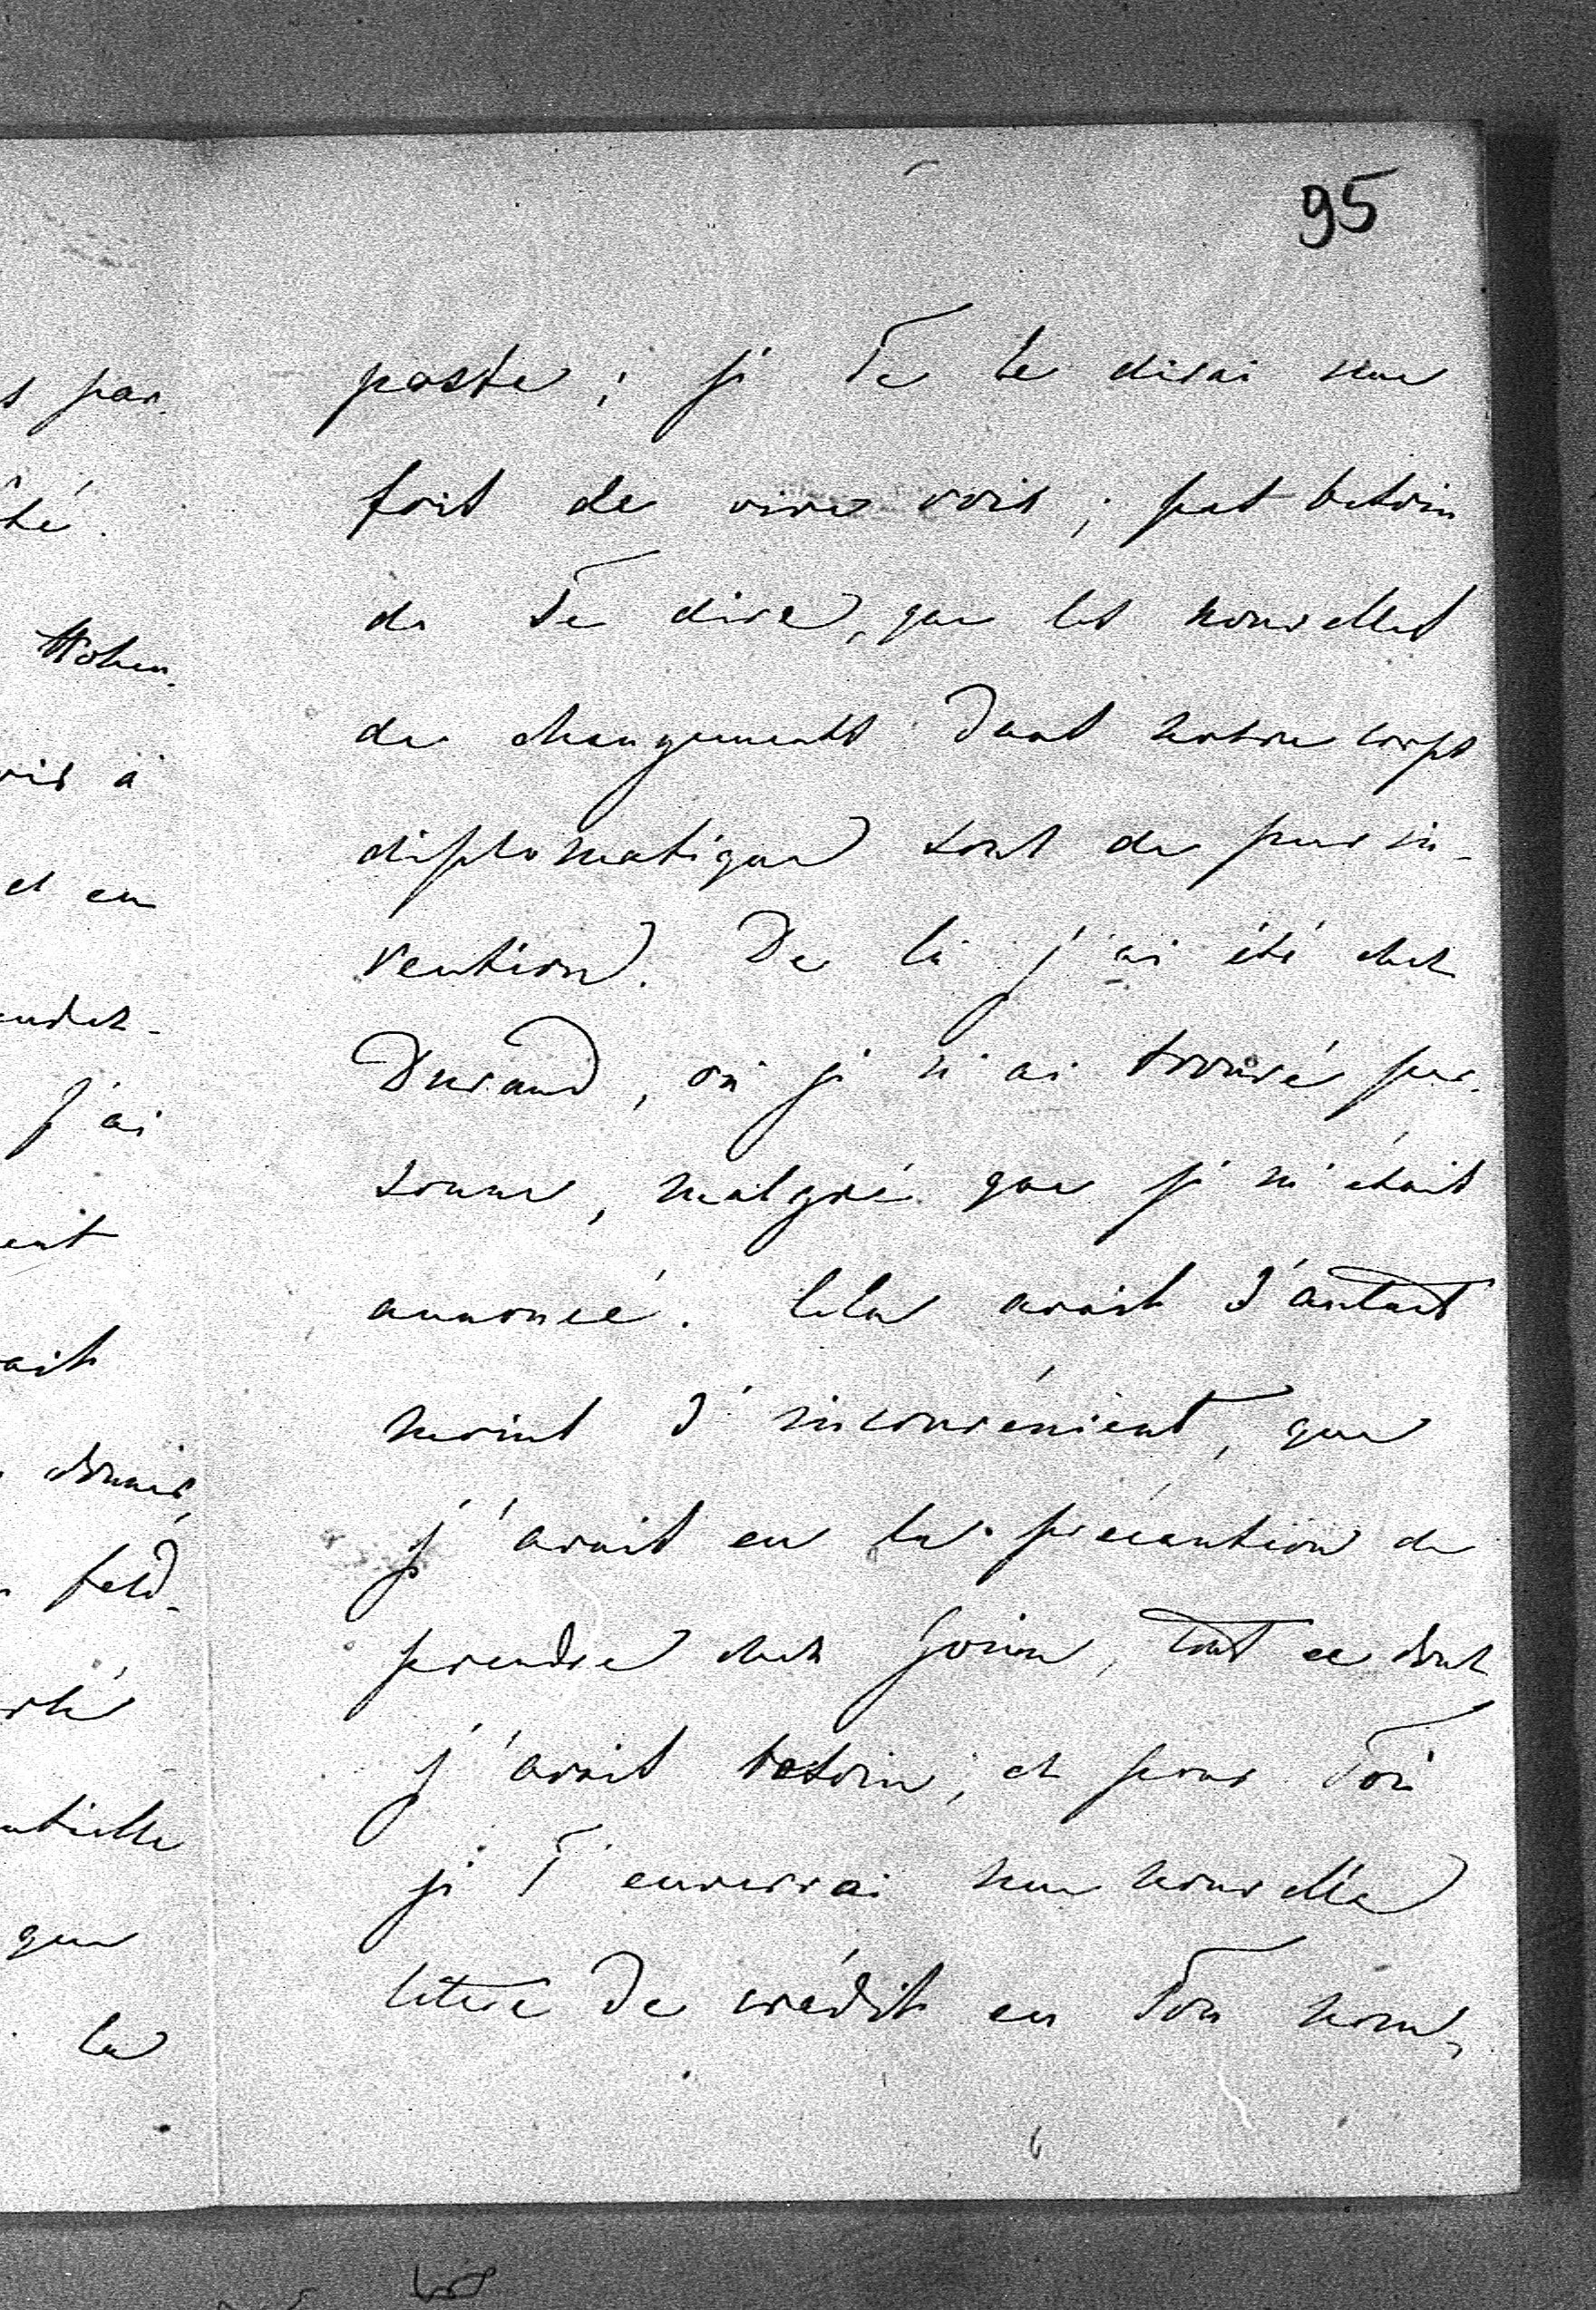 95
poste; je Te le dirai une
fois de vive voix; pas besoin
de Te dire, que les nouvelles
de changements dans notre corps
diplomatique sont de pure in-
vention. De là j'ai été chez
Durand, où je n'ai trouvé per-
sonne, malgré que je m'étais
annoncé. Cela avait d'autant
moins d'inconvénient, que
j'avais eu la précaution de
prendre chez tout ce dont
j'avais besoin; et pour Toi
je T'enverrai une nouvelle
lettre de crédit en Ton nom,
s par-
té.
Hohen-
vis à
et en
endez-
j'ai
ent
ait
feld-
ntielle
que
la